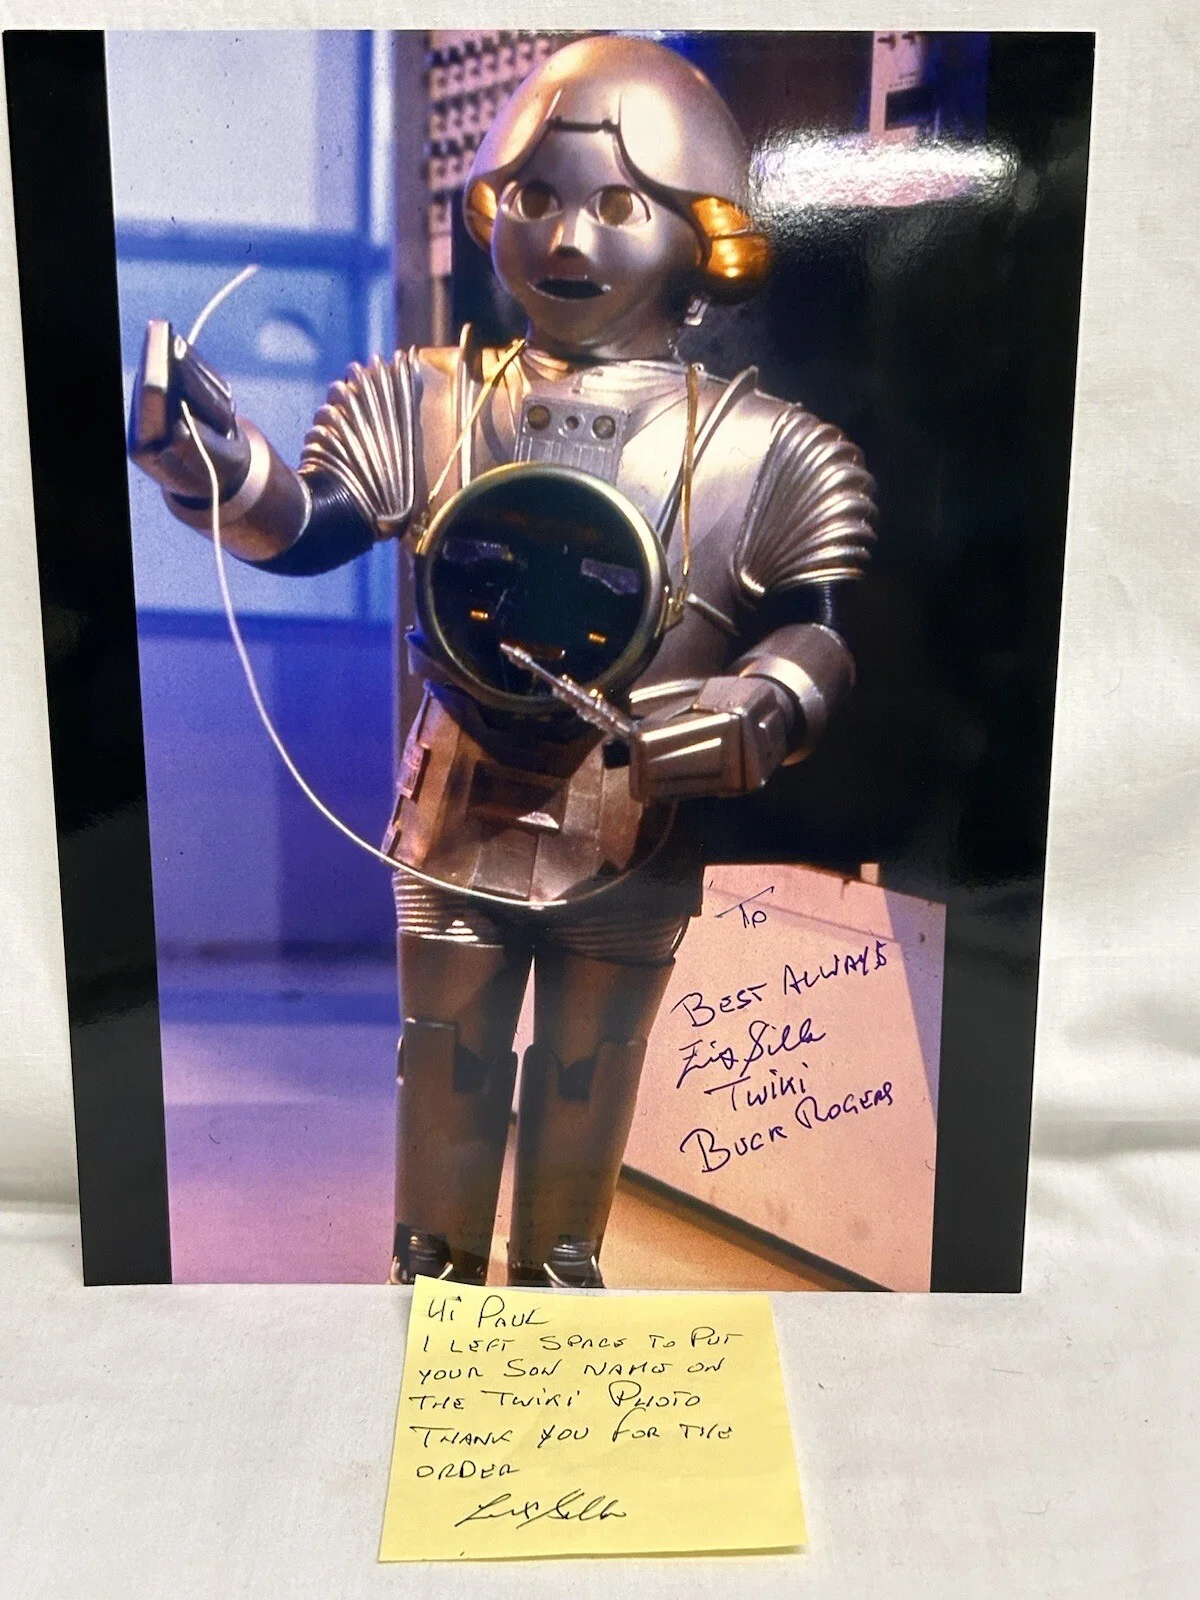 To
BEST ALWAYS
Felix Silla
TWiKi
BUCK ROGERS
Hi PAUL
I LEFT SPACE To PUT
YOUR SON NAME ON
THE TWIKI PHOTO
THANK YOU FOR THE
ORDER
Felix Silla